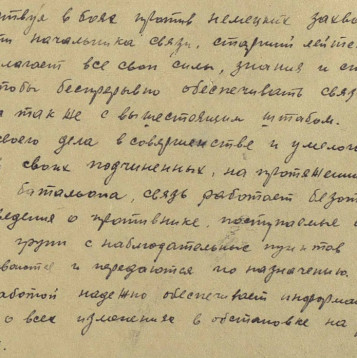 ствуя в боях против немецких захв
ти начальника связи, старший лейте
лагает все свои силы, знания и сп
тобы беспрерывно обеспечивать связ
а так же с вышестоящим штабом.
своего дела в совершенстве и умело
в своих подчиненных, на протяжении
батальона, связь работает безот
ведения о противнике, поступаемые
групп с наблюдательных пунктов
ваются и передаются по назначению.
аботой надежно обеспечивает информа
о всех изменениях в обстановке на